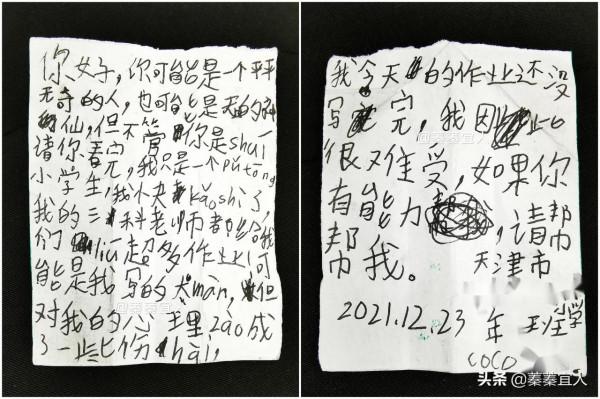 你好,你可能是一个平平
无奇的人,也可能是天的神
仙,但不管你是shuí
请你看完,我只是一个pǔtōng
小学生,我快kǎoshì了,
我的三科老师都给我
们liú超多作业,可
能是我写的太màn,但
@蓁蓁宜人
对我的心理zào成
了一些份hài,
我今天的作业还没
写完,我因此
@蓁蓁宜人
很难受,如果你
有能力,请帮
帮我。 天津市
2021.12.23 年 班 学
COCO
头条 @蓁蓁宜人